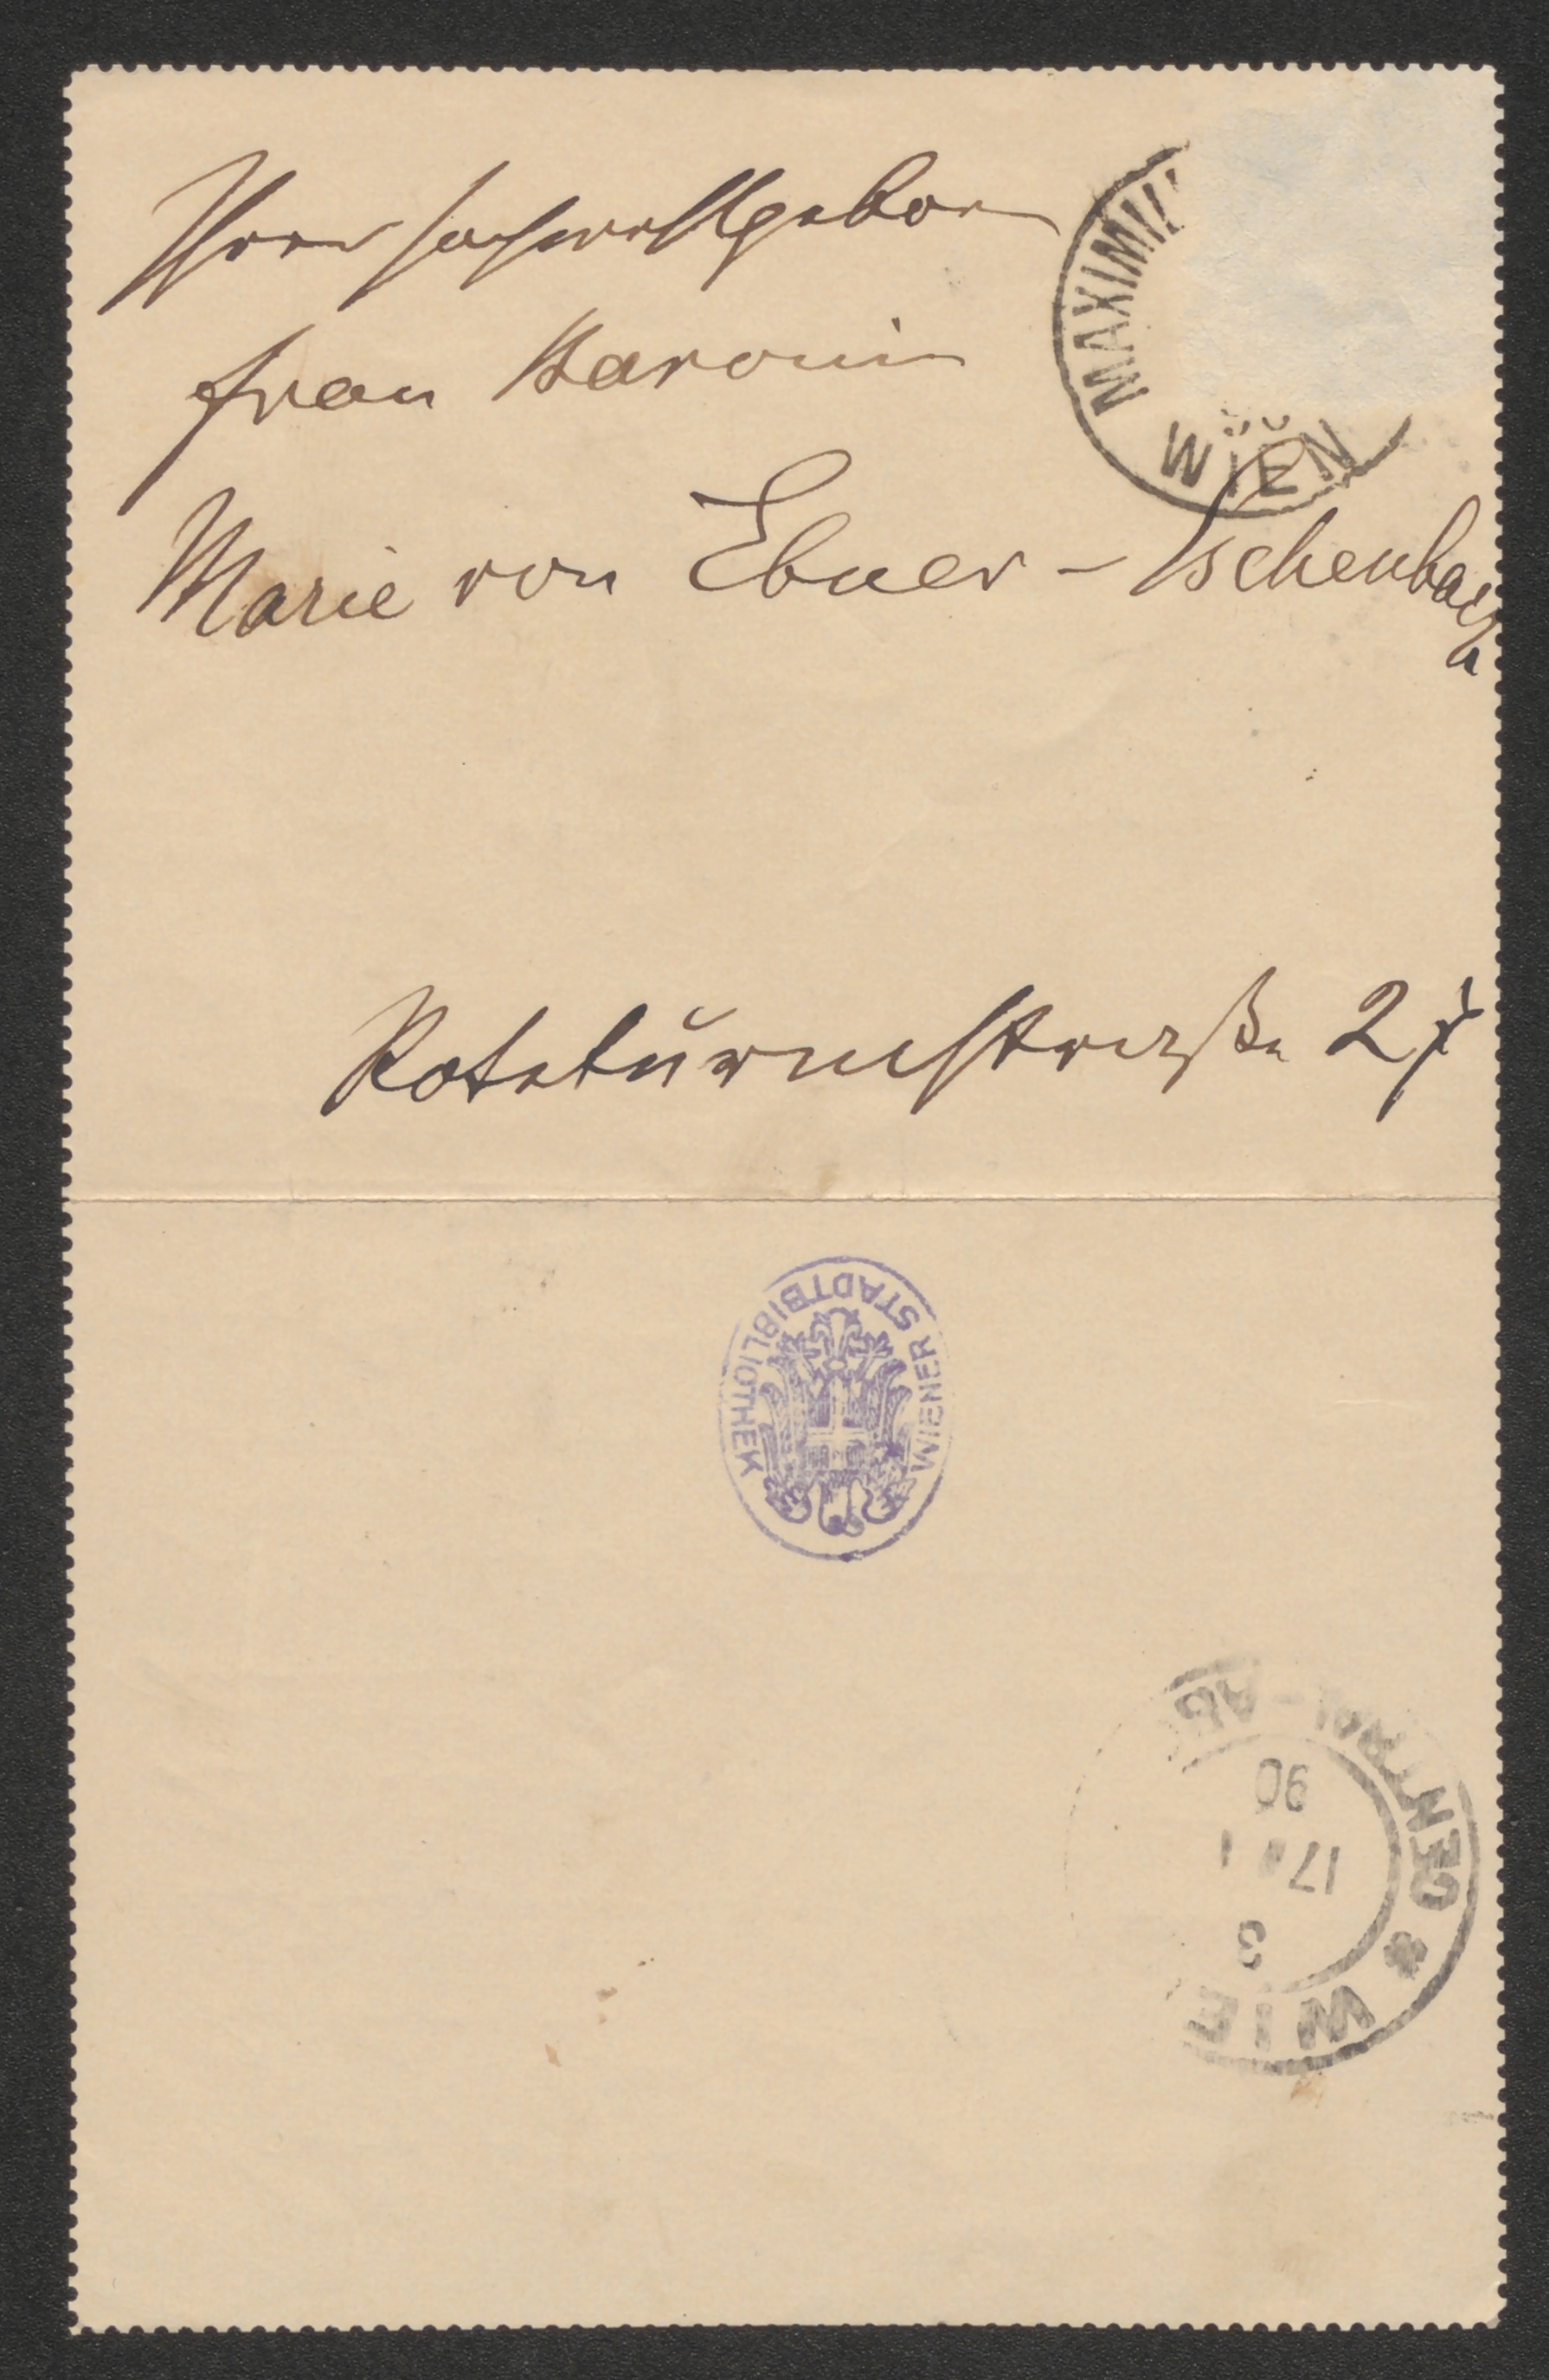 Ihrer Hochwohlgeboren
Frau Baronin
Marie von Ebner-Eschenbach
Roteturmstraße 27
MAXIMIL
WIEN
WIENER STADTBIBLIOTHEK
CENTRAL-
WIE
3
17
90